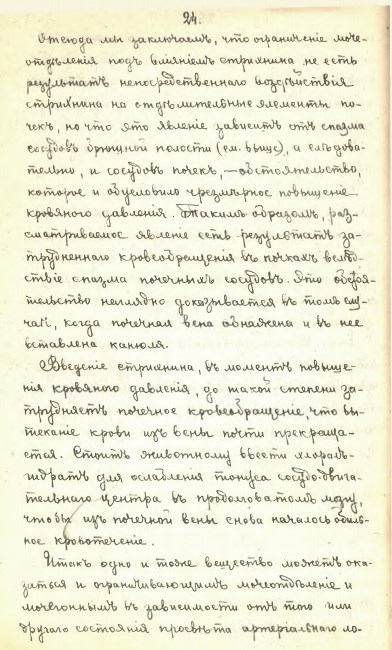 24.
Отсюда мы заключаемъ, что ограниченіе моче-
отдѣленія подъ вліяніемъ стрихнина не есть
результатъ непосредственнаго воздѣйствія
стрихнина на отдѣлительные элементы по-
чекъ, но что это явленіе зависитъ отъ спазма
сосудовъ брюшной полости (см. выше), а слѣдова-
тельно, и сосудовъ почекъ, — обстоятельство,
которое и обусловило чрезмѣрное повышеніе
кровяного давленія. Такимъ образомъ, раз-
сматриваемое явленіе есть результатъ за-
трудненнаго кровеобращенія въ почкахъ вслѣд-
ствіе спазма почечныхъ сосудовъ. Это обстоя-
тельство наглядно доказывается въ томъ слу-
чаѣ, когда почечная вена обнажена и въ нее
вставлена канюля.
Введеніе стрихнина, въ моментъ повыше-
нія кровяного давленія, до такой степени за-
трудняетъ почечное кровеобращеніе, что вы-
теканіе крови изъ вены почти прекраща-
ется. Стоитъ животному ввести хлорал-
гидратъ для ослабленія тонуса сосудо-двига-
тельнаго центра въ продолговатомъ мозгу,
чтобы изъ почечной вены снова началось обиль-
ное кровотеченіе.
Итакъ одно и тоже вещество можетъ ока-
заться и ограничивающимъ мочеотдѣленіе и
мочегоннымъ въ зависимости отъ того или
другаго состоянія просвѣта артеріальнаго ло-